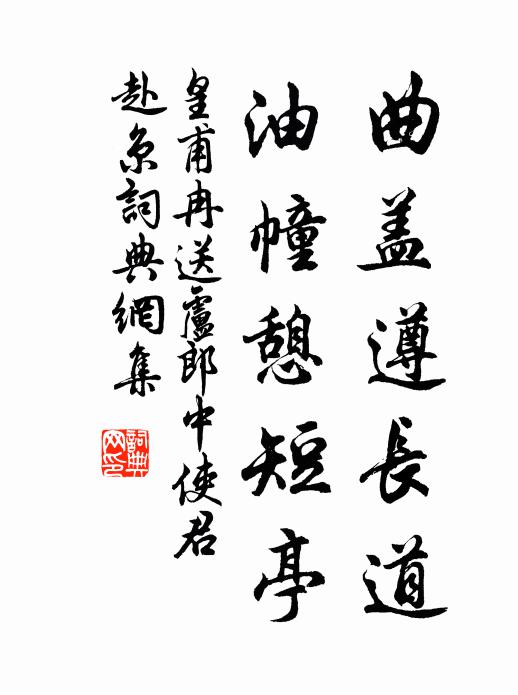 曲盖遵長道
油幢憩短亭
皇甫冉送盧郎中使君
赴京詞典網集
詞典网印